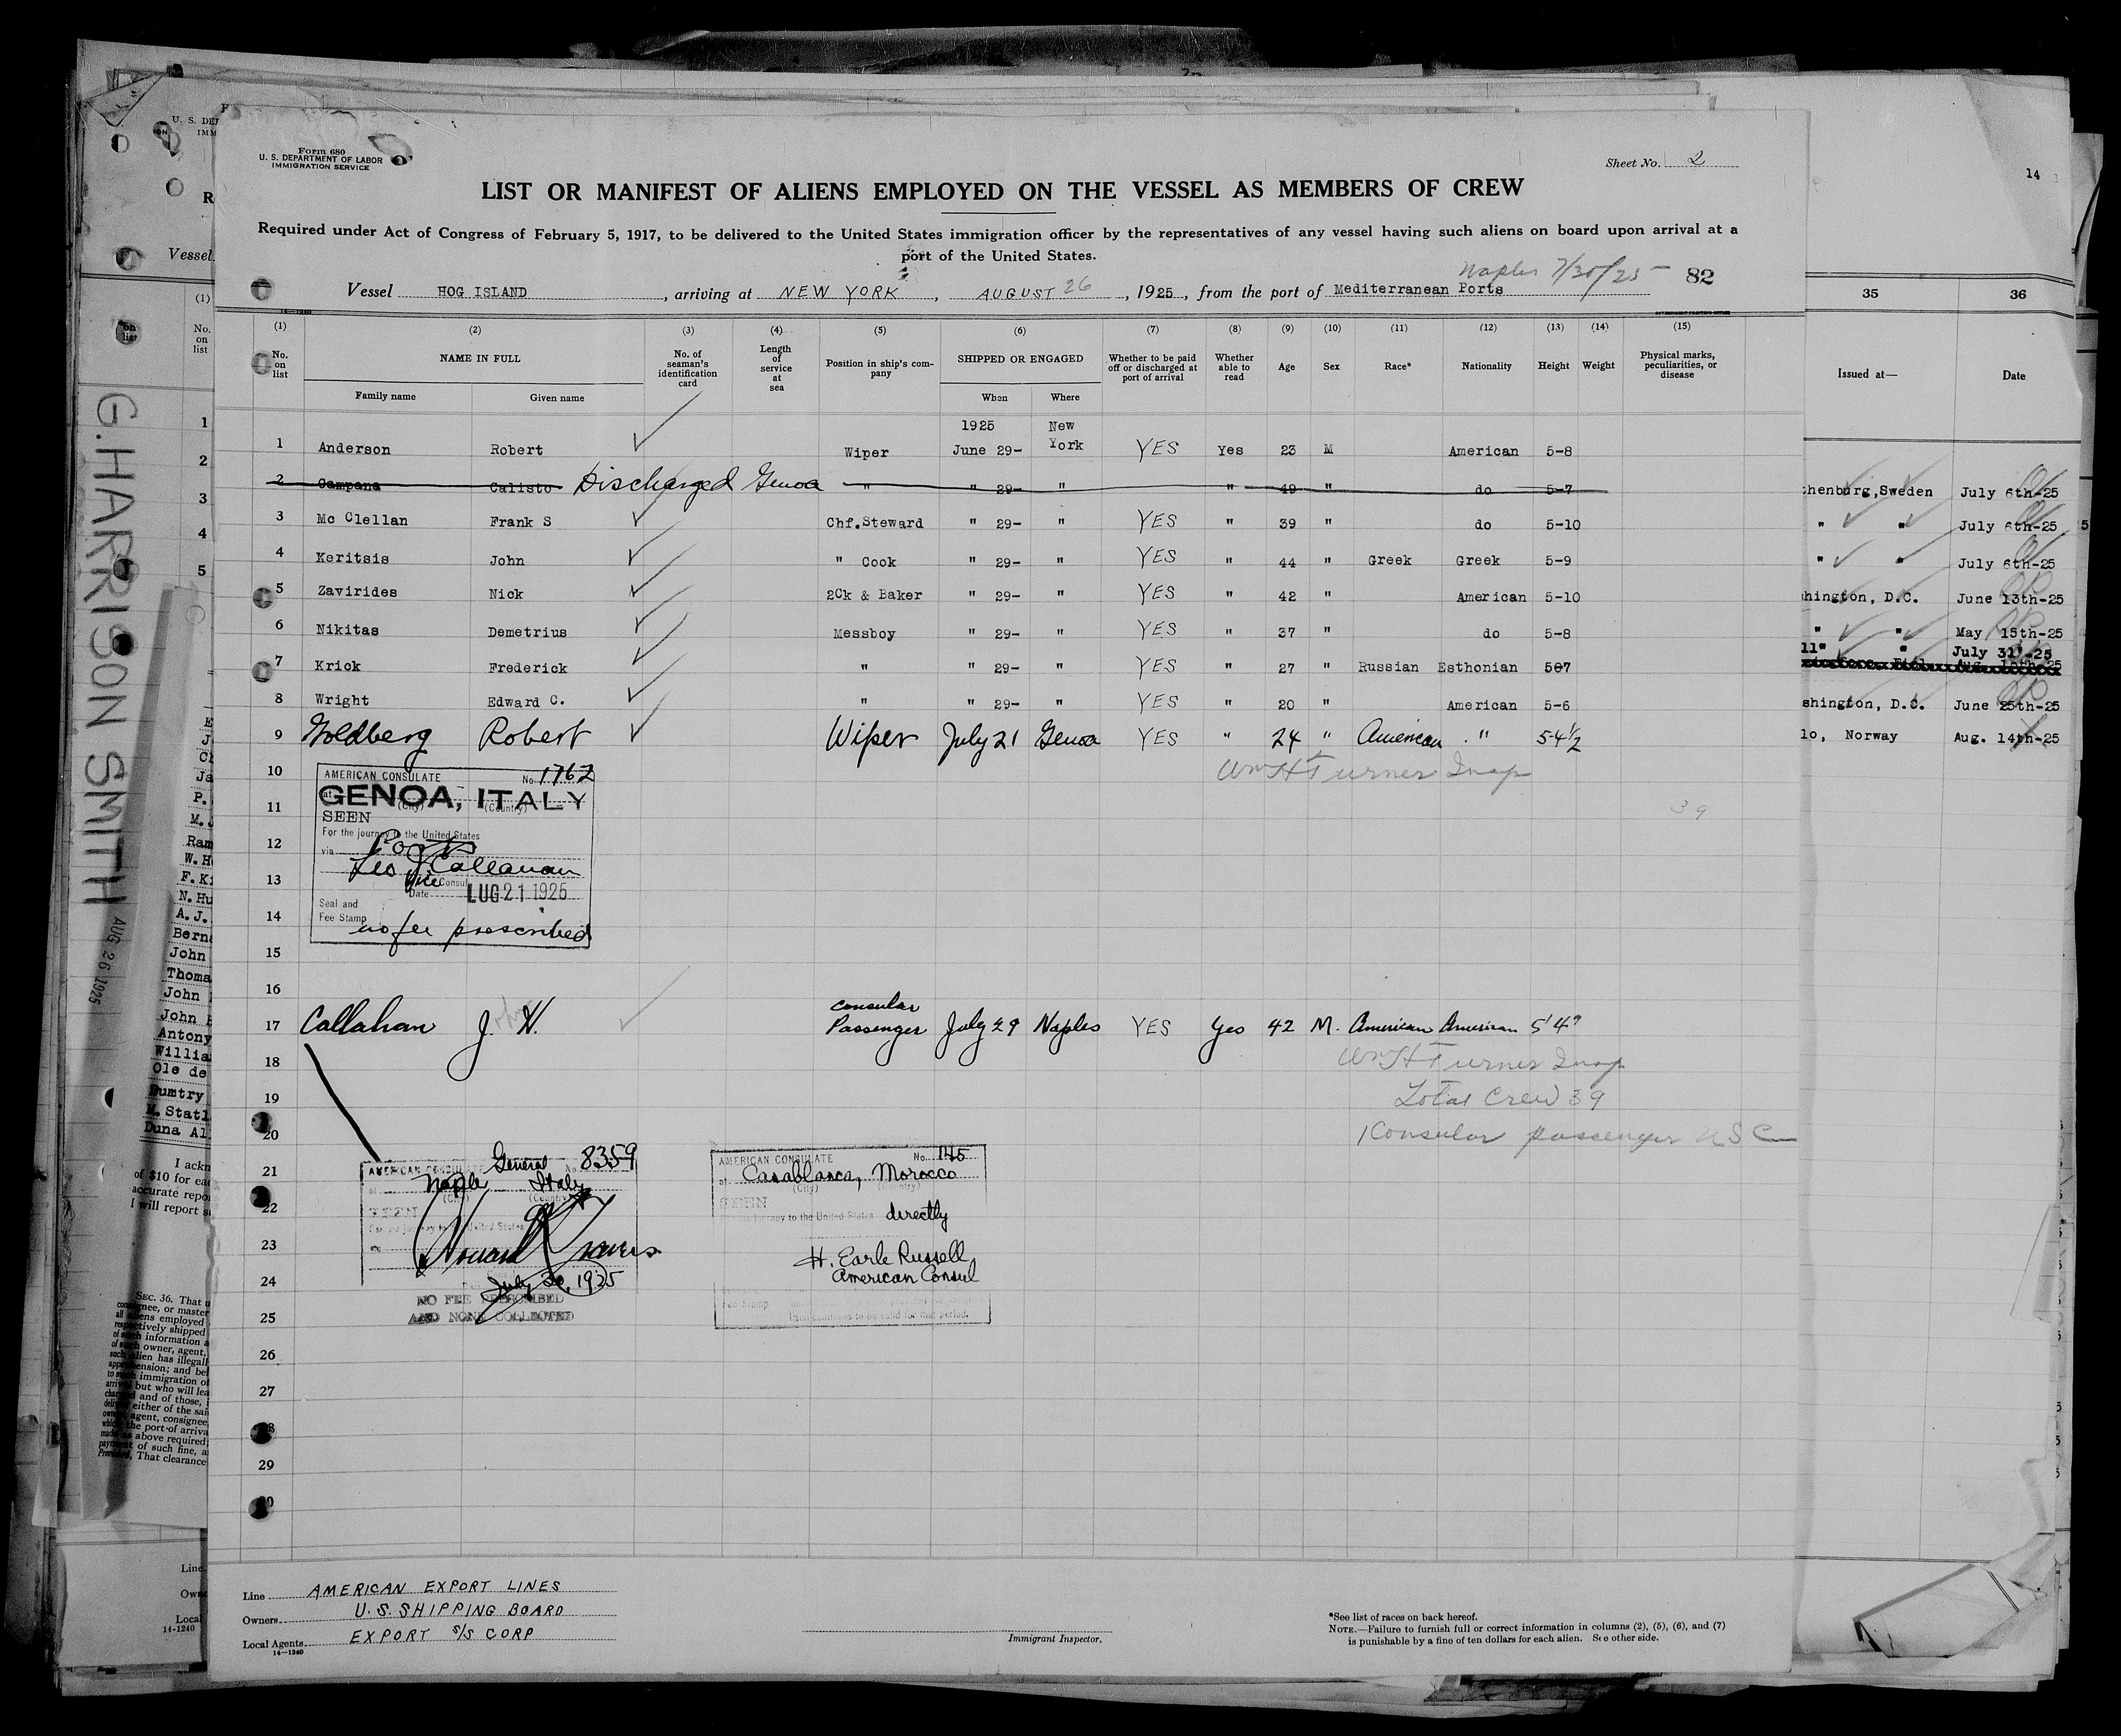 Form 680
U. S. DEPARTMENT OF LABOR
IMMIGRATION SERVICE
Sheet No. 2
LIST OR MANIFEST OF ALIENS EMPLOYED ON THE VESSEL AS MEMBERS OF CREW
Required under Act of Congress of February 5, 1917, to be delivered to the United States immigration officer by the representatives of any vessel having such aliens on board upon arrival at a
port of the United States.
Naples 7/30/25 82
Vessel HOG ISLAND, arriving at NEW YORK, AUGUST 26, 1925, from the port of Mediterranean Ports
(1) (2) (3) (4) (5) (6) (7) (8) (9) (10) (11) (12) (13) (14) (15)
No. on list NAME IN FULL No. of seaman's identification card Length of service at sea Position in ship's company SHIPPED OR ENGAGED Whether to be paid off or discharged at port of arrival Whether able to read Age Sex Race* Nationality Height Weight Physical marks, peculiarities, or disease
Family name Given name When Where
1925 New
1 Anderson Robert Wiper June 29- York YES Yes 23 M American 5-8
2 Campana Calisto Discharged Genoa " " 29- " " 49 " do 5-7
3 Mc Clellan Frank S Chf.Steward " 29- " YES " 39 " do 5-10
4 Keritsis John " Cook " 29- " YES " 44 " Greek Greek 5-9
5 Zavirides Nick 2Ck & Baker " 29- " YES " 42 " American 5-10
6 Nikitas Demetrius Messboy " 29- " YES " 37 " do 5-8
7 Krick Frederick " " 29- " YES " 27 " Russian Esthonian 507
8 Wright Edward C. " " 29- " YES " 20 " American 5-6
9 Goldberg Robert Wiper July 21 Genoa YES " 24 " American " 5 4½
10
Wm H Turner Insp
11
39
12
13
14
15
16
AMERICAN CONSULATE No. 1762
at GENOA, ITALY
(City) (Country)
SEEN
For the journey to the United States
via Ports
Leo J Callanan
Vice Consul
Date LUG 21 1925
Seal and
Fee Stamp
no fee prescribed
17 Callahan J. H. Consular Passenger July 29 Naples YES Yes 42 M. American American 5' 4"
18
Wm H Turner Insp
19
Total Crew 39
20
1 Consular passenger USC
21
22
23
24
25
26
27
29
AMERICAN CONSULATE General No. 8359
at Naples Italy
(City) (Country)
SEEN
For the journey to the United States
July 30, 1925
NO FEE PRESCRIBED
AND NONE COLLECTED
AMERICAN CONSULATE No. 145
at Casablanca, Morocco
(City) (Country)
SEEN
journey to the United States directly
H. Earle Russell
American Consul
Fee Stamp
continues to be valid for that period.
Line AMERICAN EXPORT LINES
Owners U.S. SHIPPING BOARD
Local Agents EXPORT S/S CORP
14-1240
Immigrant Inspector.
*See list of races on back hereof.
NOTE.—Failure to furnish full or correct information in columns (2), (5), (6), and (7)
is punishable by a fine of ten dollars for each alien. See other side.
14
35 36
Issued at— Date
Sweden July 6th-25
" " July 6th-25
" " July 6th-25
D.C. June 13th-25
" " May 15th-25
" July 31'-25
D.C. June 25th-25
Norway Aug. 14th-25
G. HARRISON SMITH
AUG 26 1925
Vessel
(1)
No. on list
1
2
3
4
5
Line
Local
14-1240